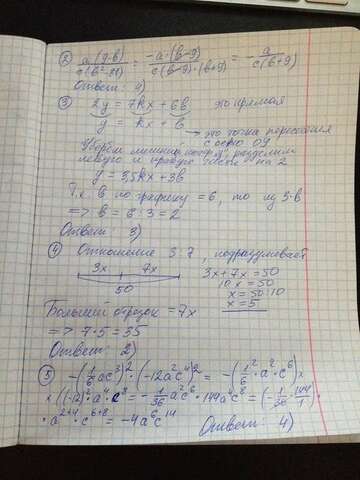 2) a(9-b) / c(b²-81) = -a·(b-9) / c(b-9)·(b+9) = -a / c(b+9)
Ответ: 4)
3) 2y = 7kx + 6b это прямая
y = kx + b
→ это точка пересечения
с осью OY
Уберём лишний
левую и правую часть на 2
y = 3,5kx + 3b
Т.к. b по графику = 6, то из 3·b
=> b = 6:3 = 2
Ответ: 3)
4) Отношение 3:7, подразумевает
3x 7x 3x + 7x = 50
50 10x = 50
x = 50:10
x = 5
Больший отрезок = 7x
=> 7·5 = 35
Ответ: 2)
5) -(1/6 ac³)² · (-12a²c⁴)² = -(1/6² · a² · c⁶) ×
× ((-12)² · a⁴ · c⁸ = -1/36 a²c⁶ · 144a⁴c⁸ = (-1/36 · 144/1) ·
· a²⁺⁴ · c⁶⁺⁸ = -4a⁶c¹⁴ Ответ: 4)